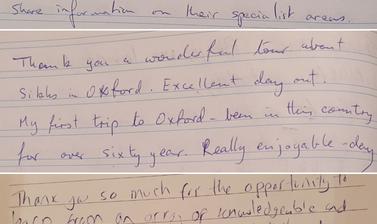 Share information on their specialist areas.
Thank you a wonderful tour about
Sikhs in Oxford. Excellent day out.
My first trip to Oxford - been in this country
for over sixty year. Really enjoyable - day
Thank you so much for the opportunity to
learn from an array of knowledgeable and